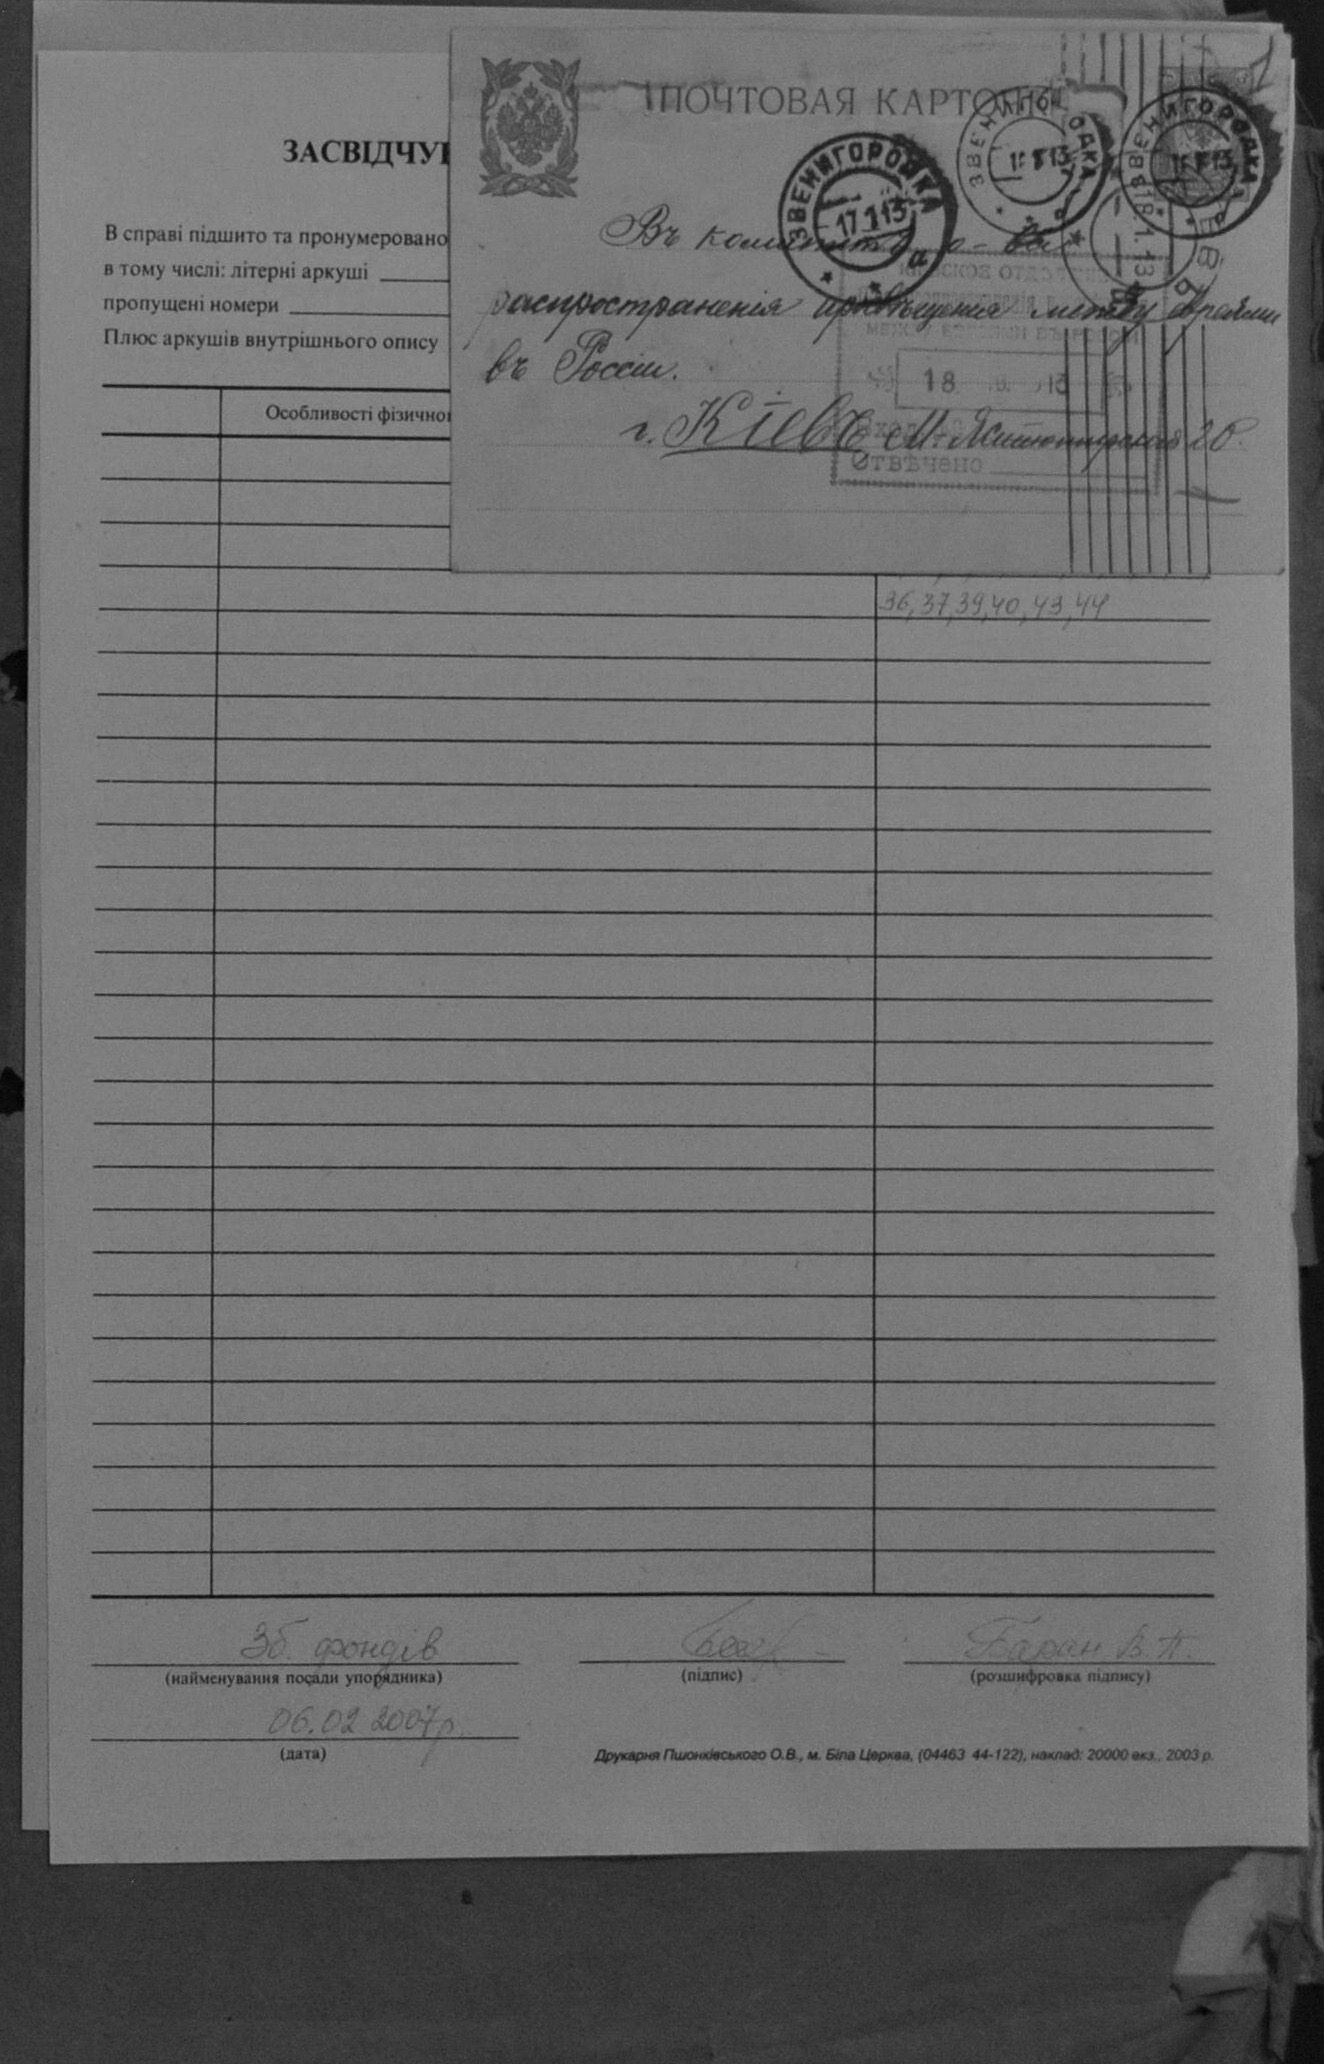 ЗАСВІДЧУ
В справі підшито та пронумеровано
в тому числі: літерні аркуші
пропущені номери
Плюс аркушів внутрішнього опису
Особливості фізично
ПОЧТОВАЯ КАРТО
ЗВЕНИГОРОДКА
17.1.13
ЗВЕНИГОРОДКА
13
ЗВЕНИГОРОДКА
13
18.1.13
Въ комитетъ о-ва
распространенія просвѣщенія между евреями
въ Россіи.
г. Кіевъ М. Житомирская 20.
КІЕВСКОЕ ОТДѢЛЕНІЕ
МЕЖДУ ЕВРЕЯМИ ВЪ РОССІИ
18
Отвѣчено
36, 37, 39, 40, 43, 44
Зб. фондів
Баран В. П.
(найменування посади упорядника)
(підпис)
(розшифровка підпису)
06.02 2007 р.
(дата)
Друкарня Пшонківського О.В., м. Біла Церква, (04463 44-122), наклад: 20000 екз., 2003 р.